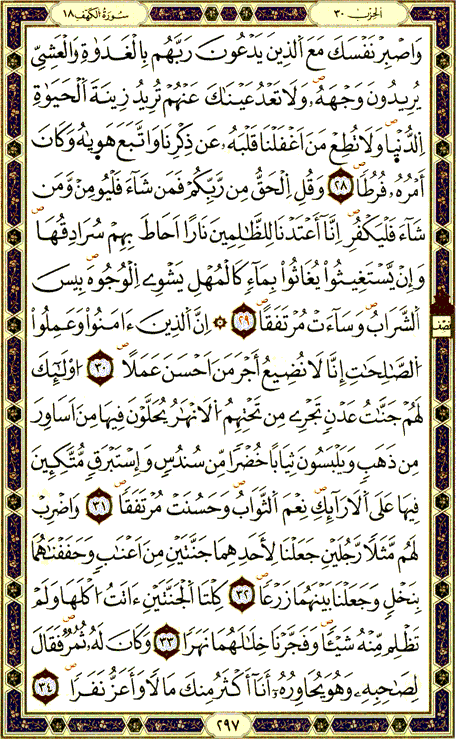 الحزب ٣٠
سُورَةُ الْكَهْفِ ١٨
وَاصْبِرْ نَفْسَكَ مَعَ اَلذِينَ يَدْعُونَ رَبَّهُم بِالْغَدَوٰةِ وَالْعَشِيِّ
يُرِيدُونَ وَجْهَهُۥ وَلَا تَعْدُ عَيْنَاكَ عَنْهُمْ تُرِيدُ زِينَةَ اَلْحَيَوٰةِ
اِلدُّنْيٰا وَلَا تُطِعْ مَنَ اَغْفَلْنَا قَلْبَهُۥ عَن ذِكْرِنَا وَاتَّبَعَ هَوٰيهُ وَكَانَ
أَمْرُهُۥ فُرُطًا ٢٨ وَقُلِ اِلْحَقُّ مِن رَّبِّكُمْ فَمَن شَآءَ فَلْيُومِنْ وَّمَن
شَآءَ فَلْيَكْفُرِ اِنَّآ أَعْتَدْنَا لِلظَّٰلِمِينَ نَارًا اَحَاطَ بِهِمْ سُرَادِقُهَا
وَإِنْ يَّسْتَغِيثُواْ يُغَاثُواْ بِمَآءٍ كَالْمُهْلِ يَشْوِي اِلْوُجُوهَ بِيسَ
اَلشَّرَابُ وَسَآءَتْ مُرْتَفَقًا ٢٩ ۞ اِنَّ اَلذِينَ ءَامَنُواْ وَعَمِلُواْ
نصف
اُلصَّٰلِحَٰتِ إِنَّا لَا نُضِيعُ أَجْرَ مَنَ اَحْسَنَ عَمَلًا ٣٠ اُوْلَٰٓئِكَ
لَهُمْ جَنَّٰتُ عَدْنٍ تَجْرِي مِن تَحْتِهِمُ اُلَانْهَٰرُ يُحَلَّوْنَ فِيهَا مِنَ اَسَاوِرَ
مِن ذَهَبٍ وَيَلْبَسُونَ ثِيَابًا خُضْرًا مِّن سُندُسٍ وَإِسْتَبْرَقٍ مُّتَّكِـِٕينَ
فِيهَا عَلَى اَلَارَآئِكِ نِعْمَ اَلثَّوَابُ وَحَسُنَتْ مُرْتَفَقًا ٣١ وَاضْرِبْ
لَهُم مَّثَلًا رَّجُلَيْنِ جَعَلْنَا لِأَحَدِهِمَا جَنَّتَيْنِ مِنَ اَعْنَٰبٍ وَحَفَفْنَٰهُمَا
بِنَخْلٍ وَجَعَلْنَا بَيْنَهُمَا زَرْعًا ٣٢ كِلْتَا اَلْجَنَّتَيْنِ ءَاتَتُ ا۟كْلَهَا وَلَمْ
تَظْلِم مِّنْهُ شَيْـًٔا وَفَجَّرْنَا خِلَٰلَهُمَا نَهَرًا ٣٣ وَكَانَ لَهُۥ ثُمُرٌ فَقَالَ
لِصَٰحِبِهِۦ وَهُوَ يُحَاوِرُهُۥٓ أَنَآ أَكْثَرُ مِنكَ مَالًا وَأَعَزُّ نَفَرًا ٣٤
٢٩٧